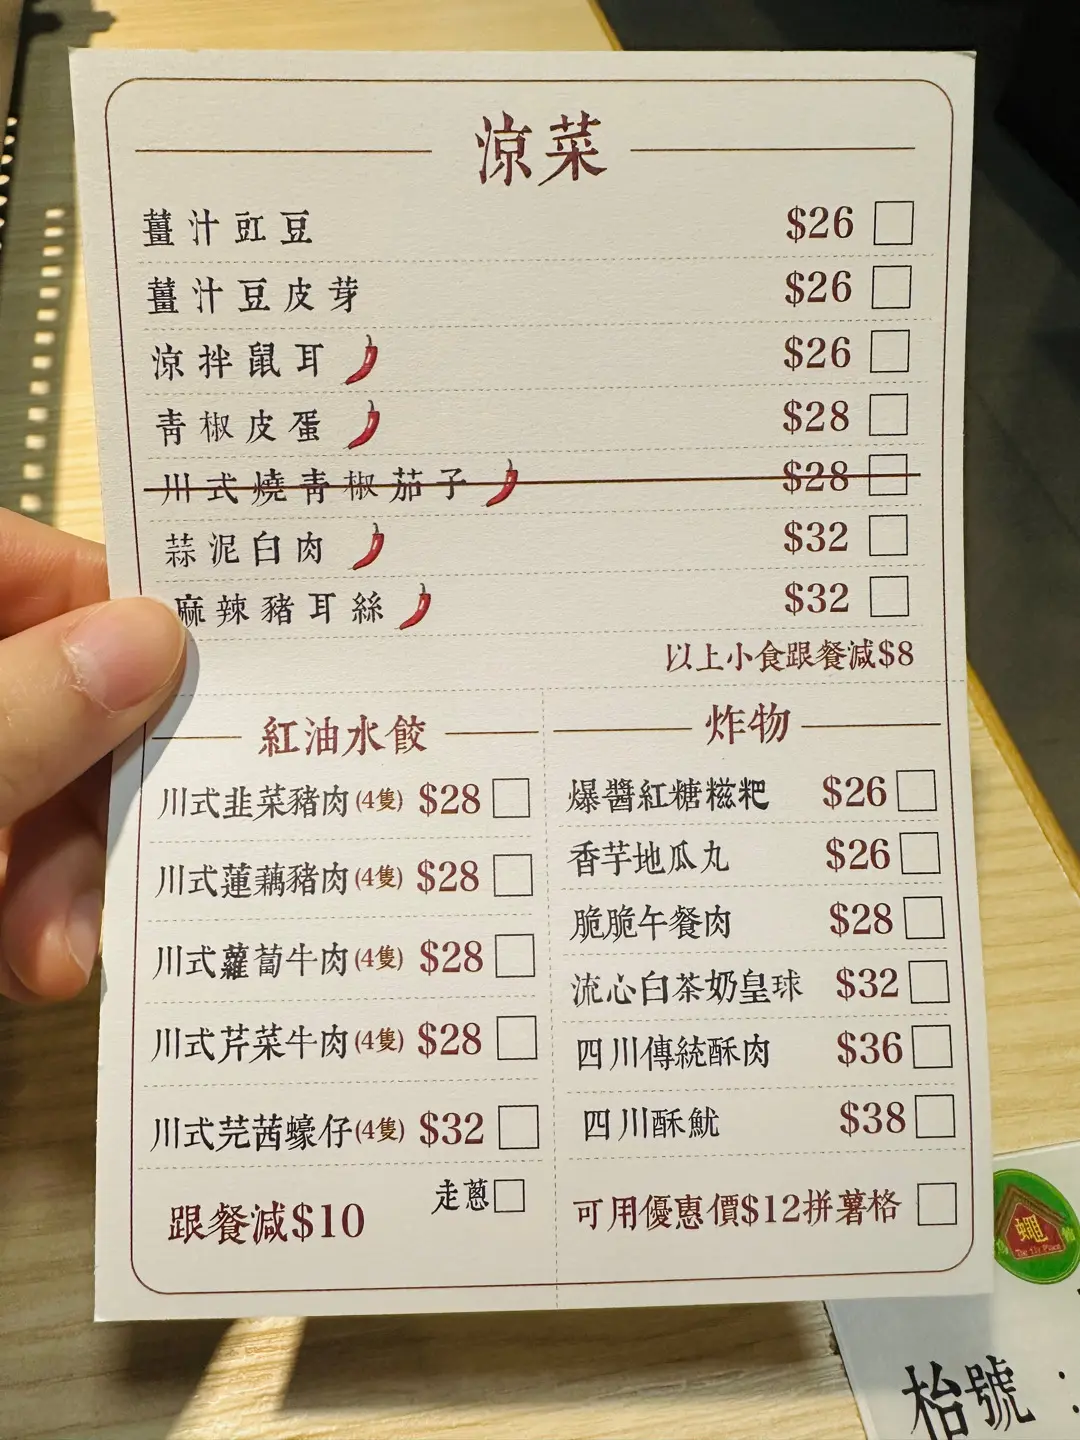 涼菜
薑汁豇豆 $26
薑汁豆皮芽 $26
涼拌鼠耳 $26
青椒皮蛋 $28
川式燒青椒茄子 $28
蒜泥白肉 $32
麻辣豬耳絲 $32
以上小食跟餐減$8
紅油水餃
川式韭菜豬肉(4隻) $28
川式蓮藕豬肉(4隻) $28
川式蘿蔔牛肉(4隻) $28
川式芹菜牛肉(4隻) $28
川式芫茜蠔仔(4隻) $32
走蔥
跟餐減$10
炸物
爆醬紅糖糍粑 $26
香芋地瓜丸 $26
脆脆午餐肉 $28
流心白茶奶皇球 $32
四川傳統酥肉 $36
四川酥魷 $38
可用優惠價$12拼薯格
蠅
The Fly Place
枱號：